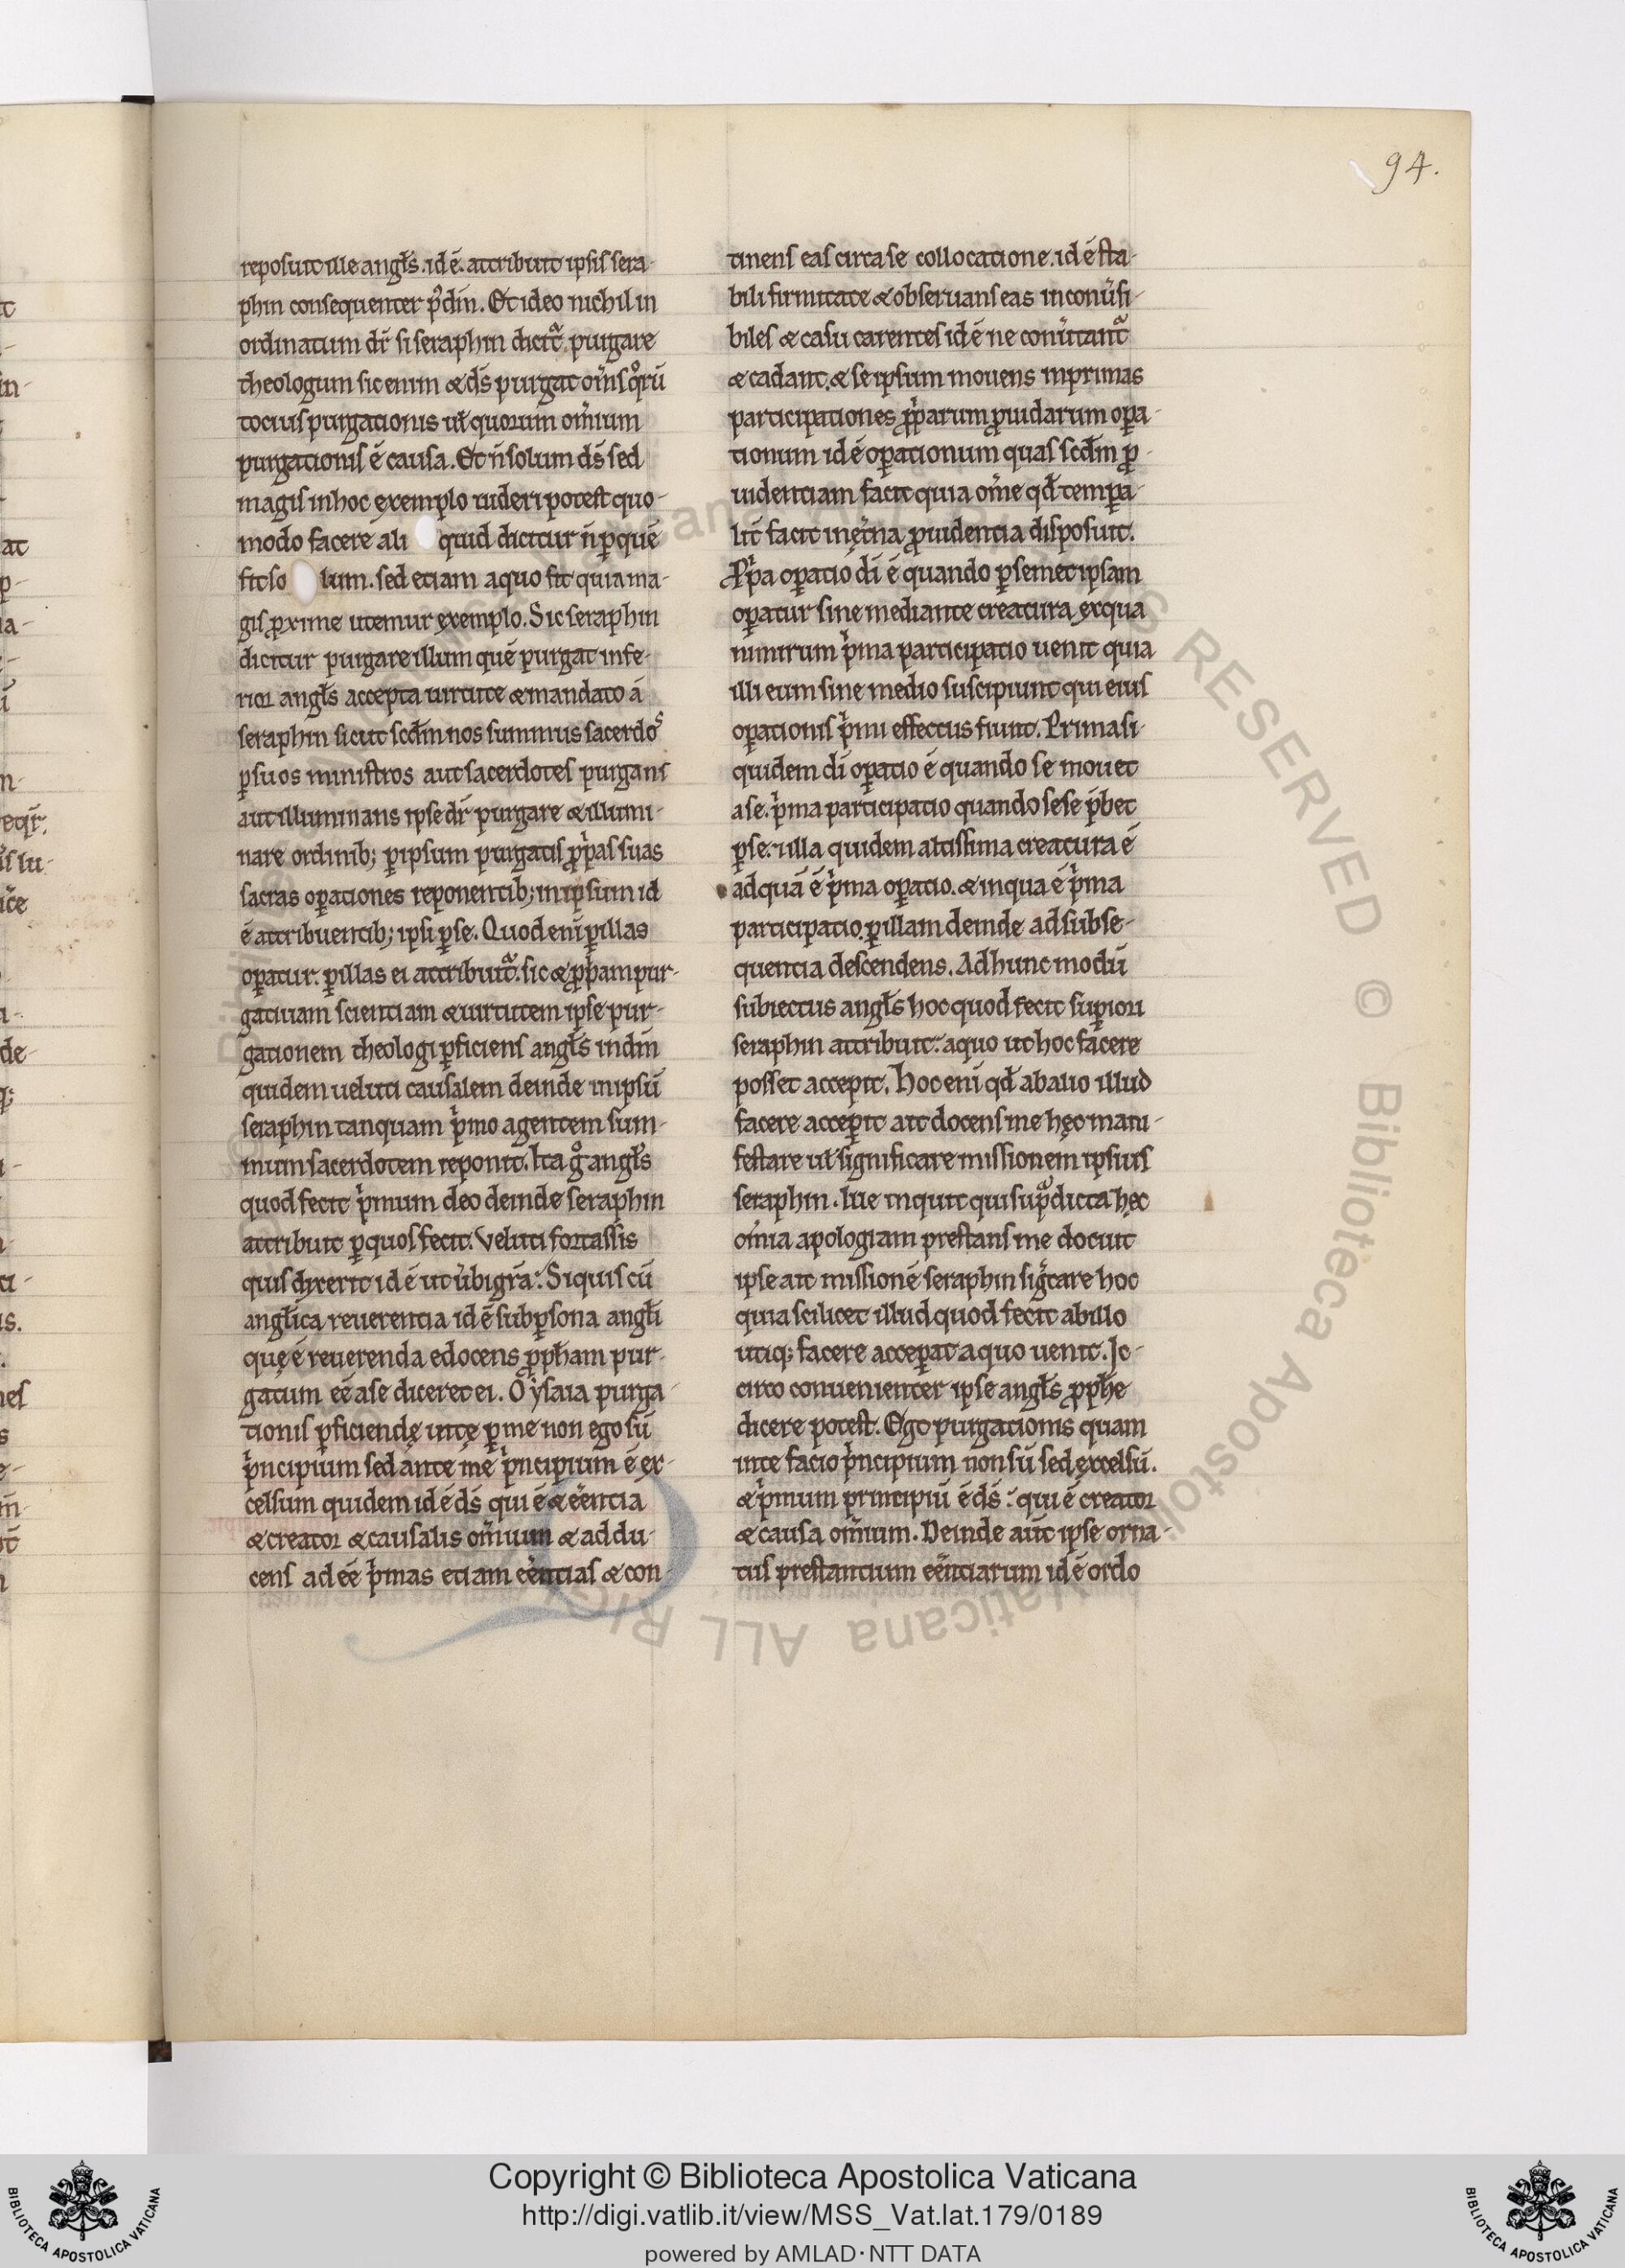 94.
reposuit ille angl̄s. id ē. attribuit ipsis sera-
phin consequenter p̾ dm̄. Et ideo nichil in
ordinatum dr̄ si seraphin dicit᷑ purgare
theologum sic enim & ds̄ purgat om̄s q̊rū
tocius purgationis ut̄ quorum om̄ium
purgationis ē causa. Et n̄ solum ds̄ sed
magis in hoc exemplo uideri potest quo-
modo facere ali quid dicitur n̄ p̱ quē
fit so lum. sed etiam a quo fit quia ma-
gis p̱xime utemur exemplo. Sic seraphin
dicitur purgare illum quē purgat infe-
rior angl̄s accepta uirtute & mandato a
seraphin sicut scd̄m nos summus sacerdos
p̱ suos ministros aut sacerdotes purgans
aut illuminans ipse dr̄ purgare & illumi-
nare ordinib; p̱ ipsum purgatis p̱p̾as suas
sacras op̱ationes reponentib; in ipsum id
ē attribuentib; ipsi p̱ se. Quod eni̅ p̱ illas
op̱atur. p̱ illas ei attribuit᷑. sic & p̱ph̄am pur-
gatiuam scientiam & uirtutem ipse pur-
gationem theologi p̱ficiens angl̄s in dm̄
quidem ueluti causalem deinde in ipsū
seraphin tanquam p̾mo agentem sum-
mum sacerdotem reponit. Ita g̊ angl̄s
quod fecit p̾mum deo deinde seraphin
attribuit p̱ quos fecit. Veluti fortassis
quis dixerit id ē ut ūbi gr̄a. Si quis cū
angl̄ica reuerentia id ē sub p̱sona angl̄i
quę ē reuerenda edocens p̱ph̄am pur-
gatum eē a se diceret ei. O ysaia purga-
tionis p̱ficiendę in te p̱ me non ego sū
p̾ncipium sed ante me p̾ncipium ē ex-
celsum quidem id ē ds̄ qui ē & eēntia
& creator & causalis om̄ium & addu-
cens ad eē p̾mas etiam eēntias & con-
tinens eas circa se collocatione. id ē sta-
bili firmitate & obseruans eas inconūsi-
biles & casu carentes id ē ne conūtant᷑
& cadant. & se ipsum mouens in primas
participationes p̱p̾arum p̱uidarum op̱a-
tionum id ē op̱ationum quas scd̄m p̱-
uidentiam facit quia om̄e qd̄ temp̱a-
lit̄ facit in ęt̄na p̱uidentia disposuit.
P̱p̾a op̱atio di̅ ē quando p̱ semet ipsam
op̱atur sine mediante creatura ex qua
nimirum p̾ma participatio uenit quia
illi eum sine medio suscipiunt qui eius
op̱ationis p̾mi effectus fiunt. Prima si-
quidem di̅ op̱atio ē quando se mouet
a se. p̾ma participatio quando sese p̾bet
p̱ se. illa quidem altissima creatura ē
ad quā ē p̾ma op̱atio. & in qua ē p̾ma
participatio. p̱ illam deinde ad subse-
quentia descendens. Ad hunc modū
subiectus angl̄s hoc quod fecit sup̱iori
seraphin attribuit. a quo ut hoc facere
posset accepit. Hoc eni̅ qd̄ ab alio illud
facere accep̱it ait docens me hęc mani-
festare ut̄ significare missionem ipsius
seraphin. Iue inquit qui sup̾dicta hęc
om̄ia apologiam prestans me docuit
ipse ait missionē seraphin sig̾care hoc
quia scilicet illud quod fecit ab illo
utiq; facere accep̱at a quo uenit. Ic-
circo conuenienter ipse angl̄s p̱ph̄e
dicere potest. Ego purgationis quam
in te facio p̾ncipium non sū sed excelsū.
& p̾mum principiū ē ds̄. qui ē creator
& causa om̄ium. Deinde aut̄ ipse orna-
tus prestantium eēntiarum id ē ordo
Copyright © Biblioteca Apostolica Vaticana
http://digi.vatlib.it/view/MSS_Vat.lat.179/0189
powered by AMLAD·NTT DATA
BIBLIOTECA APOSTOLICA VATICANA
BIBLIOTECA APOSTOLICA VATICANA